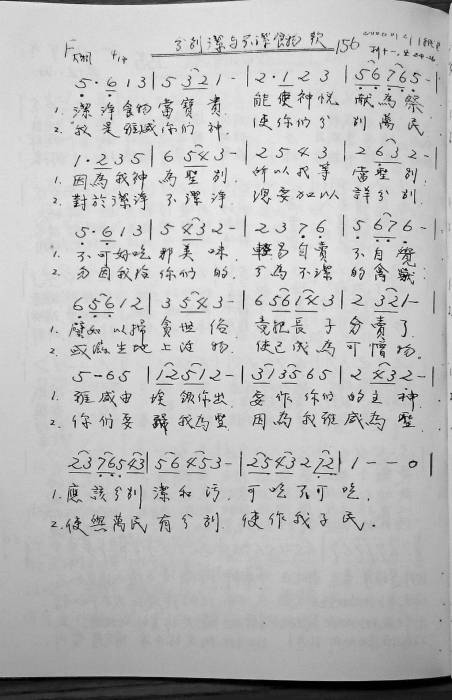 F大調 4/4 分別潔與不潔食物歌 156
5·6 1 3 | 5 3 2 1 - | 2·1 2 3 | 5 6 7 6 5 - |
1. 潔淨食物當寶貴 能使神悅 獻為祭
2. 我是 你們神 使你們分別萬民
1·2 3 5 | 6 5 4 3 - | 2 5 4 3 | 2 6 3 2 - |
1. 因為我神為聖別 所以我等當聖別
2. 對於潔淨不潔淨 總要加以詳分別
5·6 1 3 | 5 4 3 2 - | 2 3 7 6 | 5 6 7 6 - |
1. 不可好吃那美味 輕易自賣不自覺
2. 勿因我給你們的 不潔的禽獸
6 5 6 1 2 | 3 5 4 3 - | 6 5 6 1 4 3 | 2 3 2 1 - |
1. 譬如以掃貪世俗 竟把長子名賣了
2. 或滋生地上活物 使已成為可憎物
5 - 6 5 | 1 2 5 1 2 - | 3 1 3 5 6 5 | 2 4 3 2 - |
1. 領你出 要作你們的主神
2. 你們要歸我為聖 因為我 為聖
2 3 7 6 5 4 3 | 5 6 4 5 3 - | 2 5 4 3 2 7 2 | 1 - - 0 |
1. 應該分別潔和污 可吃不可吃
2. 使與萬民有分別 使作我子民